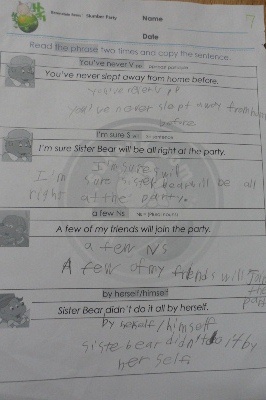 Slumber Party
Name
Date
Read the phrase two times and copy the sentence.
You've never V
You've never slept away from home before.
you've never
you've never slept away from
before
I'm sure S
I'm sure Sister Bear will be all right at the party.
I'm sure
I'm sure sister bear will be all
right at the party.
a few Ns
A few of my friends will join the party.
a few Ns
A few of my friends will
by herself/himself
Sister Bear didn't do it all by herself.
by herself/himself
siste bear didn't do it by
her self